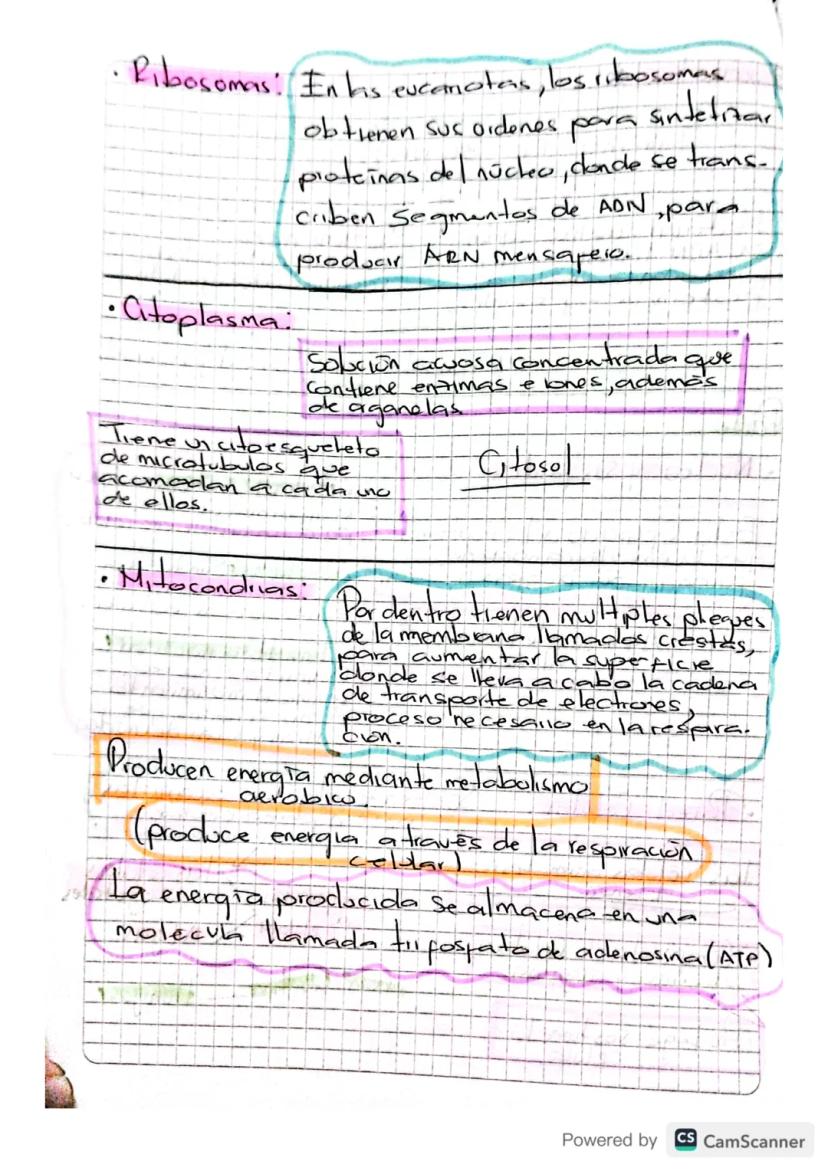 · Ribosomas:
En las eucariotas, los ribosomas
obtienen sus ordenes para sintetizar
proteínas del núcleo, donde se trans-
criben segmentos de ADN, para
producir ARN mensajero.
· Citoplasma:
Solución acuosa concentrada que
contiene enzimas e iones, además
de organelas.
Tiene un citoesqueleto
de microtubulos que
acomodan a cada uno
de ellos.
Citosol
· Mitocondrias:
Por dentro tienen multiples pliegues
de la membrana llamados crestas,
para aumentar la superficie
donde se lleva a cabo la cadena
de transporte de electrones,
proceso necesario en la respira-
ción.
Producen energía mediante metabolismo
aeróbico.
(produce energía a través de la respiración
celular)
La energía producida se almacena en una
molécula llamada trifosfato de adenosina (ATP)
Powered by CS CamScanner